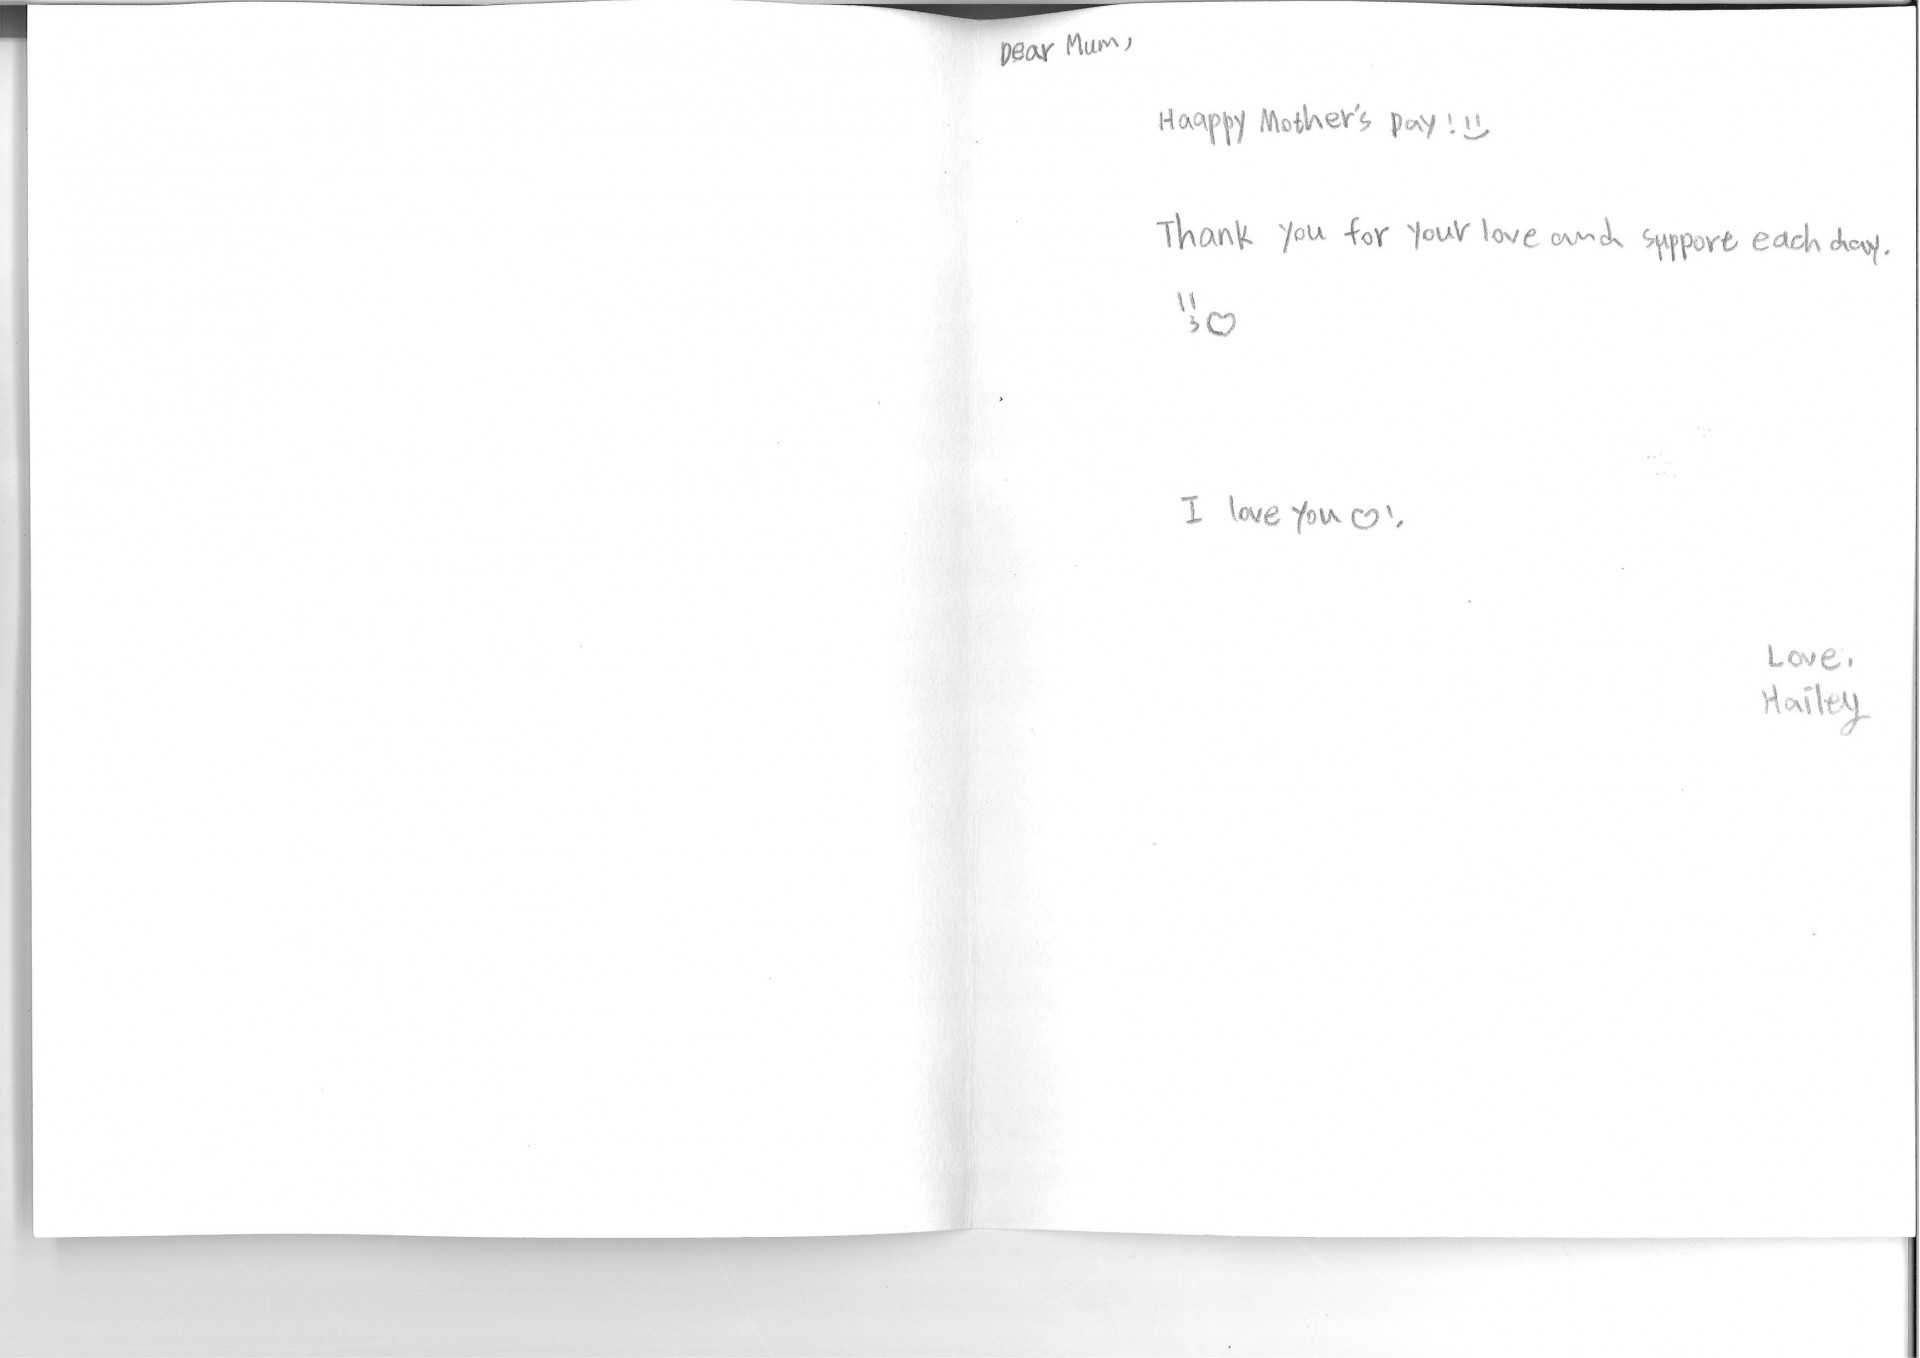 Dear Mum,
Haappy Mother's Day!
Thank you for your love and support each day.
I love you ♡!
Love,
Hailey